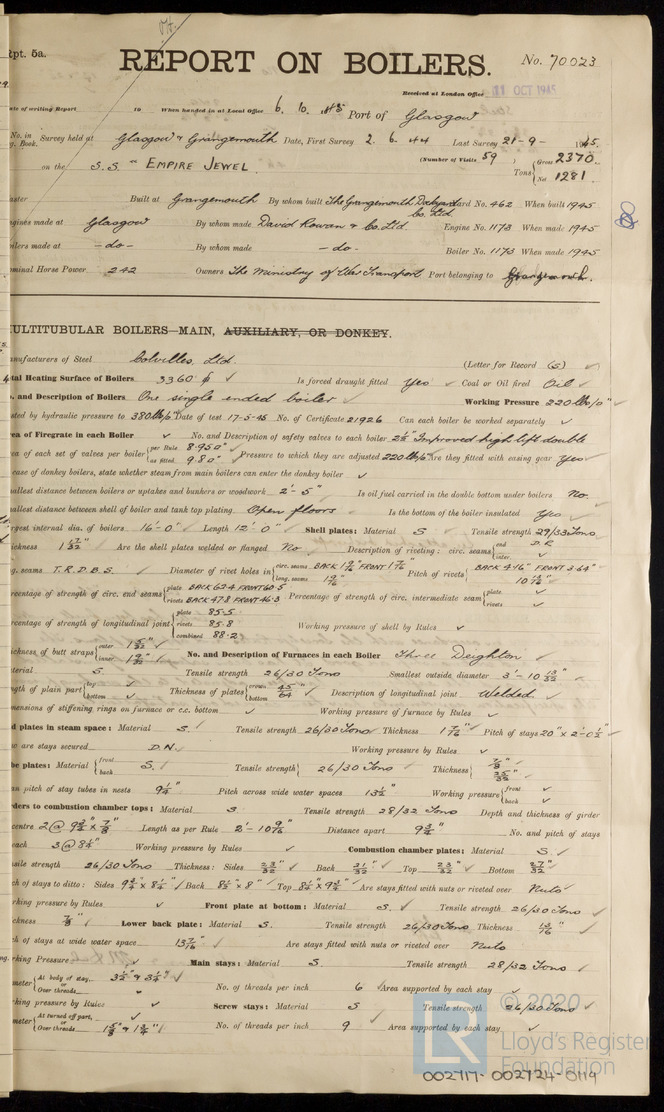 Rpt. 5a.
REPORT ON BOILERS.
No. 70023
Received at London Office 11 OCT 1945
ate of writing Report to When handed in at Local Office 6. 10. 1945 Port of Glasgow
No. in g. Book. Survey held at Glasgow & Grangemouth Date, First Survey 2. 6. 44 Last Survey 21-9- 1945.
on the S.S. "EMPIRE JEWEL. (Number of Visits 59 ) Tons { Gross 2370 Net 1281
aster Built at Grangemouth By whom built The Grangemouth Dockyard Co. Ltd Yard No. 462 When built 1945
ngines made at Glasgow By whom made David Rowan & Co. Ltd Engine No. 1173 When made 1945
oilers made at -do- By whom made -do- Boiler No. 1173 When made 1945
ominal Horse Power 242 Owners The Ministry of War Transport Port belonging to
ULTITUBULAR BOILERS—MAIN, AUXILIARY, OR DONKEY.
anufacturers of Steel Colvilles Ltd. (Letter for Record (S) )
tal Heating Surface of Boilers 3360 Is forced draught fitted Yes Coal or Oil fired Oil
. and Description of Boilers One single ended boiler Working Pressure 220 lbs/□"
sted by hydraulic pressure to 380 lb/□" Date of test 17-5-45 No. of Certificate 21926 Can each boiler be worked separately
rea of Firegrate in each Boiler No. and Description of safety valves to each boiler 2½" Improved high lift double
ea of each set of valves per boiler { per Rule 8.95□" as fitted 9.80" Pressure to which they are adjusted 220 lb/□" Are they fitted with easing gear Yes
case of donkey boilers, state whether steam from main boilers can enter the donkey boiler
allest distance between boilers or uptakes and bunkers or woodwork 2'-5" Is oil fuel carried in the double bottom under boilers No.
allest distance between shell of boiler and tank top plating Open floors Is the bottom of the boiler insulated Yes
rgest internal dia. of boilers 16'-0" Length 12'-0" Shell plates: Material S Tensile strength 29/33 Tons
ickness 1 7/32" Are the shell plates welded or flanged No Description of riveting: circ. seams { end D.R. inter.
g. seams T.R.D.B.S. Diameter of rivet holes in { circ. seams BACK FRONT long. seams Pitch of rivets { BACK FRONT
ercentage of strength of circ. end seams { plate BACK 62.4 FRONT 60.5 rivets BACK 47.8 FRONT 46.3 Percentage of strength of circ. intermediate seam { plate rivets
ercentage of strength of longitudinal joint { plate 85.5 rivets 85.8 combined 88.2 Working pressure of shell by Rules
ickness of butt straps { outer inner No. and Description of Furnaces in each Boiler Three Deighton
terial S. Tensile strength 26/30 Tons Smallest outside diameter 3'-10 13/32"
ngth of plain part { top bottom Thickness of plates { crown bottom 45/64" Description of longitudinal joint Welded
mensions of stiffening rings on furnace or c.c. bottom Working pressure of furnace by Rules
d plates in steam space: Material S. Tensile strength 26/30 Tons Thickness 1 7/16" Pitch of stays 20" x 2'-0½"
w are stays secured D.N Working pressure by Rules
be plates: Material { front back S. Tensile strength { 26/30 Tons Thickness { 7/8"
an pitch of stay tubes in nests 9¼" Pitch across wide water spaces 13½" Working pressure { front back
rders to combustion chamber tops: Material S Tensile strength 28/32 Tons Depth and thickness of girder
centre 2 @ 9¾" x 7/8" Length as per Rule 2'-10 9/16" Distance apart 9¾" No. and pitch of stays
each 3 @ 8¼" Working pressure by Rules Combustion chamber plates: Material S.
nsile strength 26/30 Tons Thickness: Sides 23/32" Back 21/32" Top 23/32" Bottom 27/32"
ch of stays to ditto: Sides 9¾" x 8¼" Back 8½" x 8" Top 8¼" x 9¾" Are stays fitted with nuts or riveted over Nuts
rking pressure by Rules Front plate at bottom: Material S. Tensile strength 26/30 Tons
ckness 7/8" Lower back plate: Material S. Tensile strength 26/30 Tons Thickness 13/16"
ch of stays at wide water space 13 7/16" Are stays fitted with nuts or riveted over Nuts
rking Pressure Main stays: Material S Tensile strength 28/32 Tons
meter { At body of stay, or Over threads 3½" & 3¼" No. of threads per inch 6 Area supported by each stay
rking pressure by Rules Screw stays: Material S Tensile strength 26/30 Tons
meter { At turned off part, or Over threads 1⅝" & 1¾" No. of threads per inch 9 Area supported by each stay
© 2020
LR
Lloyd's Register
Foundation
002717-002724-0119